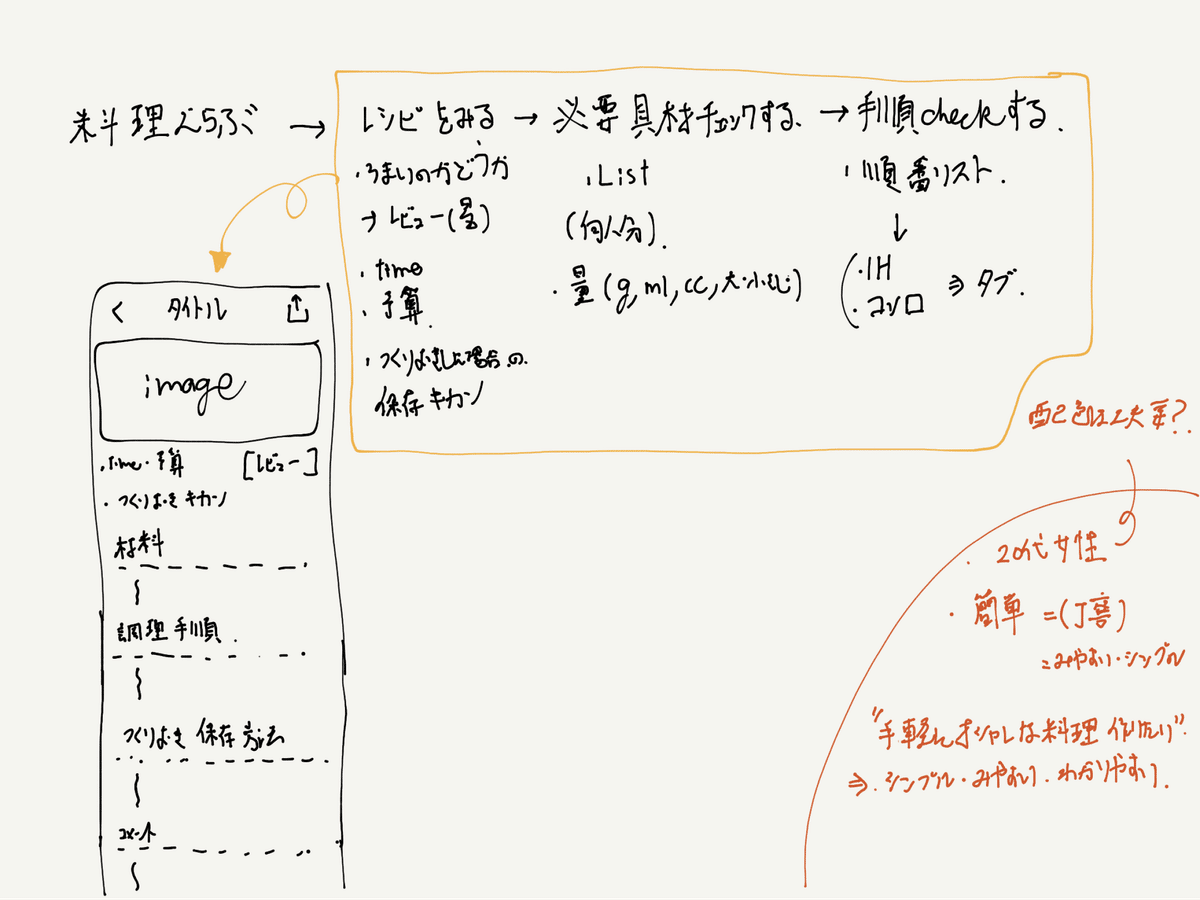 料理えらぶ → レシピをみる → 必要具材チェックする → 手順checkする.
・うまいのかどうか
→ レビュー(量)
・time
・予算.
・つくりおきした場合の
保存キカン
・List
(何人分).
・量(g, ml, cc, 大・小さじ)
・順番リスト.
↓
・IH
・コンロ
⇒ タブ.
< タイトル
image
・time・予算 [レビュー]
・つくりおきキカン
材料
調理手順.
つくりおき 保存方法
コメント
配色は工夫要?
・20代女性
・簡単 =(丁寧)
=みやすい・シンプル
"手軽にオシャレな料理 作りたい"
⇒. シンプル・みやすい・わかりやすい.